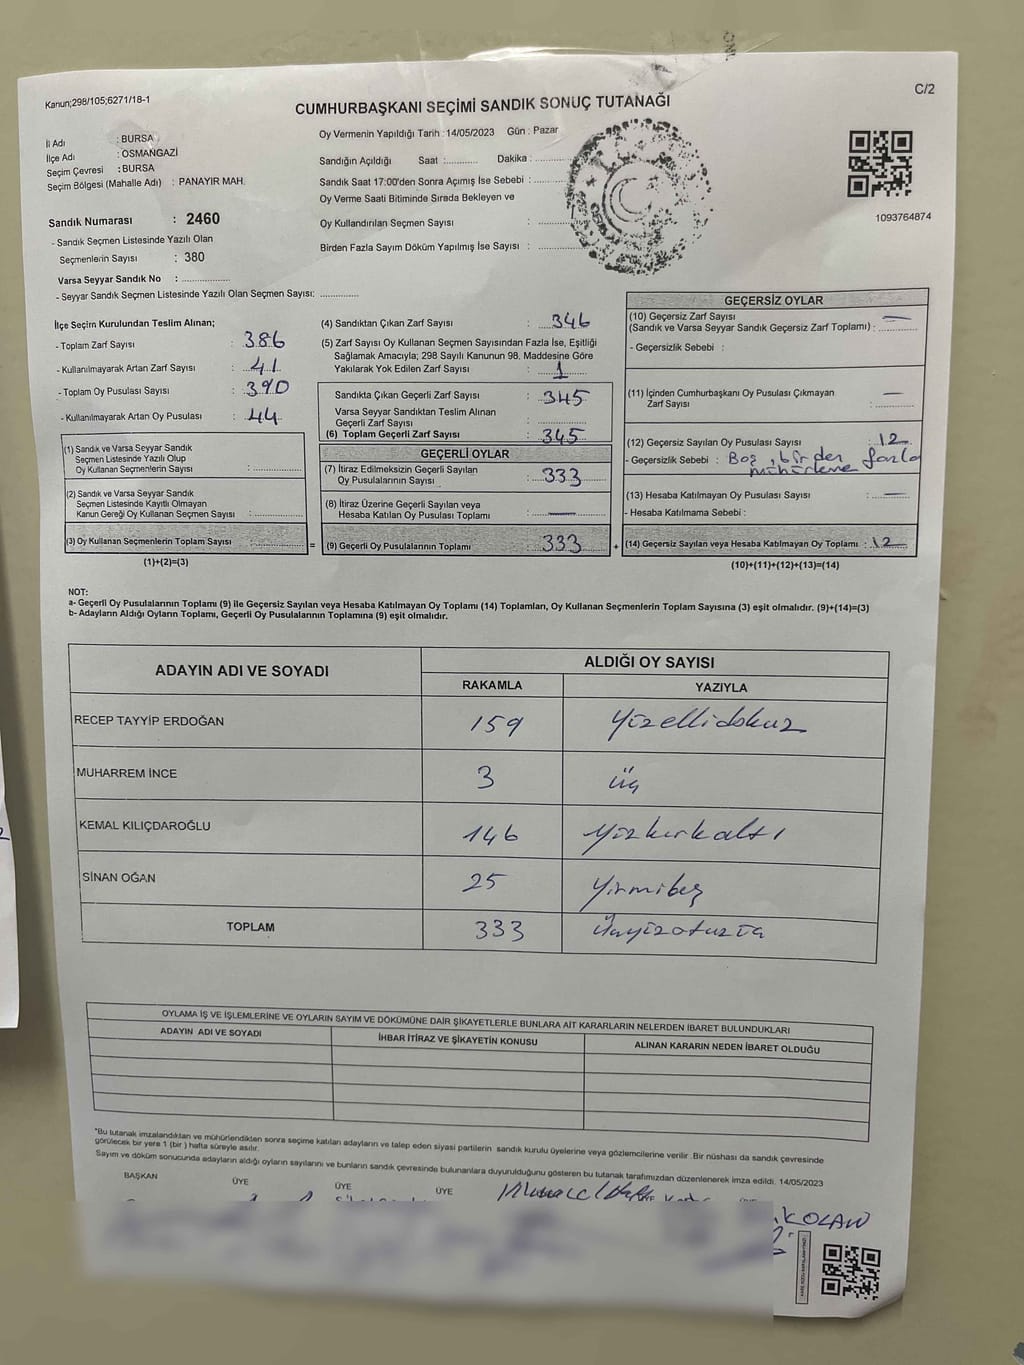 Kanun;298/105;6271/18-1
C/2
CUMHURBAŞKANI SEÇİMİ SANDIK SONUÇ TUTANAĞI
İl Adı : BURSA
İlçe Adı : OSMANGAZİ
Seçim Çevresi : BURSA
Seçim Bölgesi (Mahalle Adı) : PANAYIR MAH.
Sandık Numarası : 2460
- Sandık Seçmen Listesinde Yazılı Olan
Seçmenlerin Sayısı : 380
Varsa Seyyar Sandık No :
- Seyyar Sandık Seçmen Listesinde Yazılı Olan Seçmen Sayısı:
Oy Vermenin Yapıldığı Tarih : 14/05/2023 Gün : Pazar
Sandığın Açıldığı Saat : Dakika :
Sandık Saat 17:00'den Sonra Açımış İse Sebebi :
Oy Verme Saati Bitiminde Sırada Bekleyen ve
Oy Kullandırılan Seçmen Sayısı :
Birden Fazla Sayım Döküm Yapılmış İse Sayısı :
1093764874
İlçe Seçim Kurulundan Teslim Alınan;
- Toplam Zarf Sayısı : 386
- Kullanılmayarak Artan Zarf Sayısı : 41
- Toplam Oy Pusulası Sayısı : 390
- Kullanılmayarak Artan Oy Pusulası : 44
(1) Sandık ve Varsa Seyyar Sandık
Seçmen Listesinde Yazılı Olup
Oy Kullanan Seçmenlerin Sayısı :
(2) Sandık ve Varsa Seyyar Sandık
Seçmen Listesinde Kayıtlı Olmayan
Kanun Gereği Oy Kullanan Seçmen Sayısı :
(3) Oy Kullanan Seçmenlerin Toplam Sayısı :
(1)+(2)=(3)
(4) Sandıktan Çıkan Zarf Sayısı : 346
(5) Zarf Sayısı Oy Kullanan Seçmen Sayısından Fazla İse, Eşitliği
Sağlamak Amacıyla; 298 Sayılı Kanunun 98. Maddesine Göre
Yakılarak Yok Edilen Zarf Sayısı : 1
Sandıkta Çıkan Geçerli Zarf Sayısı : 345
Varsa Seyyar Sandıktan Teslim Alınan
Geçerli Zarf Sayısı :
(6) Toplam Geçerli Zarf Sayısı : 345
GEÇERLİ OYLAR
(7) İtiraz Edilmeksizin Geçerli Sayılan
Oy Pusulalarının Sayısı : 333
(8) İtiraz Üzerine Geçerli Sayılan veya
Hesaba Katılan Oy Pusulası Toplamı : —
= (9) Geçerli Oy Pusulalarının Toplamı : 333 +
GEÇERSİZ OYLAR
(10) Geçersiz Zarf Sayısı —
(Sandık ve Varsa Seyyar Sandık Geçersiz Zarf Toplamı) :
- Geçersizlik Sebebi :
(11) İçinden Cumhurbaşkanı Oy Pusulası Çıkmayan —
Zarf Sayısı :
(12) Geçersiz Sayılan Oy Pusulası Sayısı : 12
- Geçersizlik Sebebi : Boş, birden fazla
mühürleme
(13) Hesaba Katılmayan Oy Pusulası Sayısı : —
- Hesaba Katılmama Sebebi :
(14) Geçersiz Sayılan veya Hesaba Katılmayan Oy Toplamı : 12
(10)+(11)+(12)+(13)=(14)
NOT:
a- Geçerli Oy Pusulalarının Toplamı (9) ile Geçersiz Sayılan veya Hesaba Katılmayan Oy Toplamı (14) Toplamları, Oy Kullanan Seçmenlerin Toplam Sayısına (3) eşit olmalıdır. (9)+(14)=(3)
b- Adayların Aldığı Oyların Toplamı, Geçerli Oy Pusulalarının Toplamına (9) eşit olmalıdır.
ADAYIN ADI VE SOYADI
ALDIĞI OY SAYISI
RAKAMLA YAZIYLA
RECEP TAYYİP ERDOĞAN 159 Yüzellidokuz
MUHARREM İNCE 3 üç
KEMAL KILIÇDAROĞLU 146 yüzkırkaltı
SİNAN OĞAN 25 Yirmibeş
TOPLAM 333 Üçyüzotuzüç
OYLAMA İŞ VE İŞLEMLERİNE VE OYLARIN SAYIM VE DÖKÜMÜNE DAİR ŞİKAYETLERLE BUNLARA AİT KARARLARIN NELERDEN İBARET BULUNDUKLARI
ADAYIN ADI VE SOYADI İHBAR İTİRAZ VE ŞİKAYETİN KONUSU ALINAN KARARIN NEDEN İBARET OLDUĞU
*Bu tutanak imzalandıktan ve mühürlendikten sonra seçime katılan adayların ve talep eden siyasi partilerin sandık kurulu üyelerine veya gözlemcilerine verilir. Bir nüshası da sandık çevresinde
görülecek bir yere 1 (bir ) hafta süreyle asılır.
Sayım ve döküm sonucunda adayların aldığı oyların sayılarını ve bunların sandık çevresinde bulunanlara duyurulduğunu gösteren bu tutanak tarafımızdan düzenlenerek imza edildi. 14/05/2023
BAŞKAN ÜYE ÜYE ÜYE